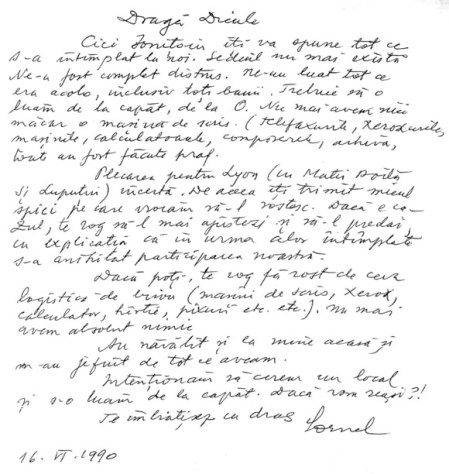 Dragă Dicule
Cici Ionițoiu îți va spune tot ce
s-a întîmplat la noi. Sediul nu mai există
Ne-a fost complet distrus. Ne-au luat tot ce
era acolo, inclusiv toți banii. Trebuie să o
luăm de la capăt, de la 0. Nu mai avem nici
măcar o mașină de scris. (Telefaxurile, xeroxurile,
mașinile, calculatoarele, composerele, arhiva,
toate au fost făcute praf.
Plecarea pentru Lyon (cu Matii Boilă
și Lupului) incertă. De aceea îți trimit micul
spici pe care vroiam să-l rostesc. Dacă e ca-
zul, te rog să-l mai ajustezi și să-l predai,
cu explicația că în urma celor întîmplate
s-a anihilat participarea noastră.
Dacă poți, te rog fă rost de ceva
logistică de birou (mașini de scris, xerox,
calculator, hîrtie, pixuri etc. etc.). Nu mai
avem absolut nimic
Au năvălit și la mine acasă și
m-au jefuit de tot ce aveam.
Intenționăm să cerem un local
și s-o luăm de la capăt. Dacă vom reuși?!
Te îmbrățișez cu drag Cornel
16. VI. 1990